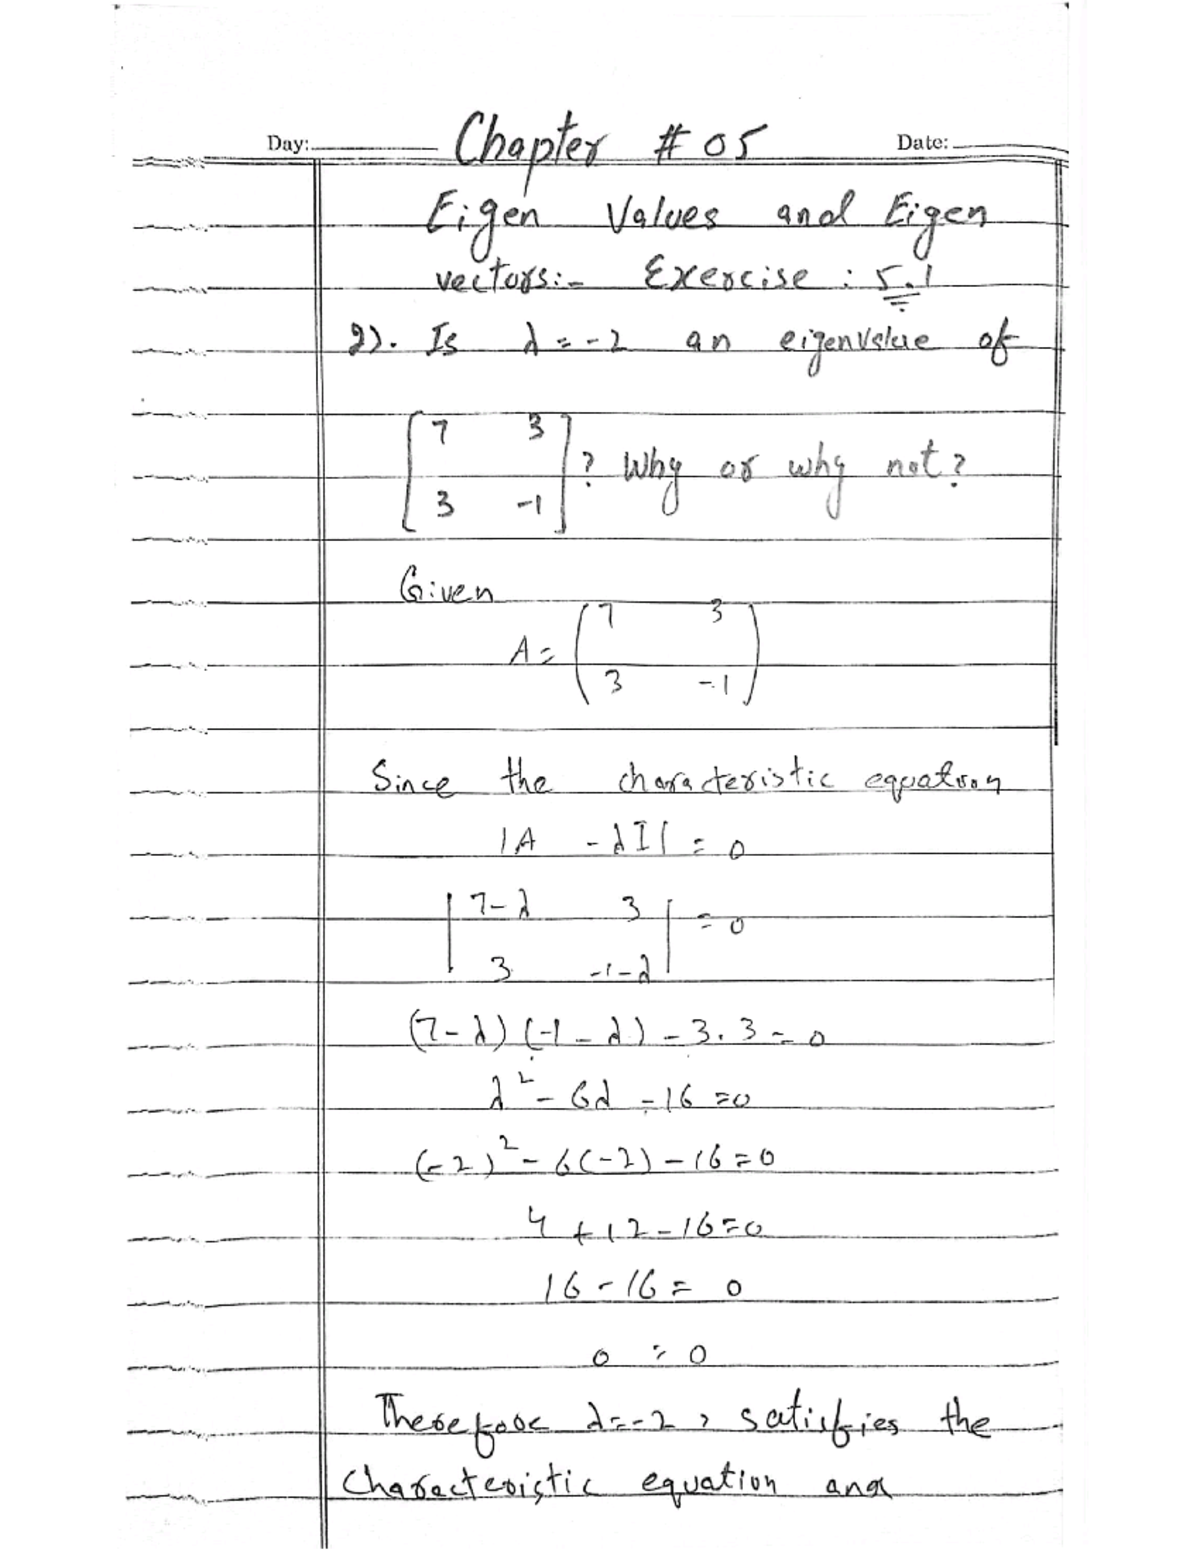 Day: Chapter # 05 Date:
Eigen Values and Eigen
vectors:- Exercise : 5.1
2). Is λ = -2 an eigenvalue of
[7 3
3 -1] ? Why or why not?
Given
A = (7 3
3 -1)
Since the characteristic equation
|A - λI| = 0
|7-λ 3
3 -1-λ| = 0
(7-λ)(-1-λ) - 3.3 = 0
λ² - 6λ - 16 = 0
(-2)² - 6(-2) - 16 = 0
4 + 12 - 16 = 0
16 - 16 = 0
0 = 0
Therefore λ = -2, satisfies the
characteristic equation and